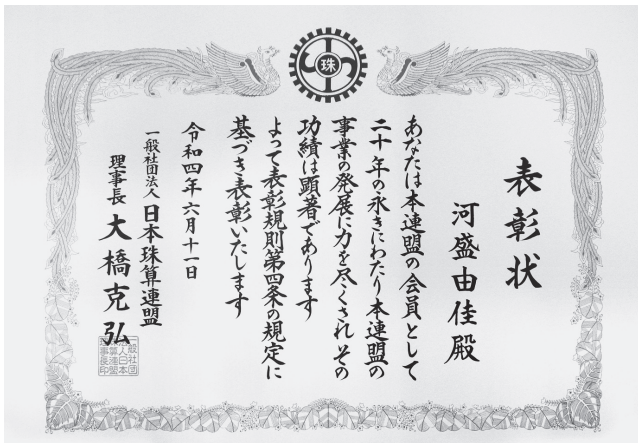 珠
表彰状
河盛由佳殿
あなたは本連盟の会員として
二十年の永きにわたり本連盟の
事業の発展に力を尽くされその
功績は顕著であります
よって表彰規則第四条の規定に
基づき表彰いたします
令和四年六月十一日
一般社団法人日本珠算連盟
理事長 大橋克弘
一般社団
法人日本
珠算連盟
理事長印